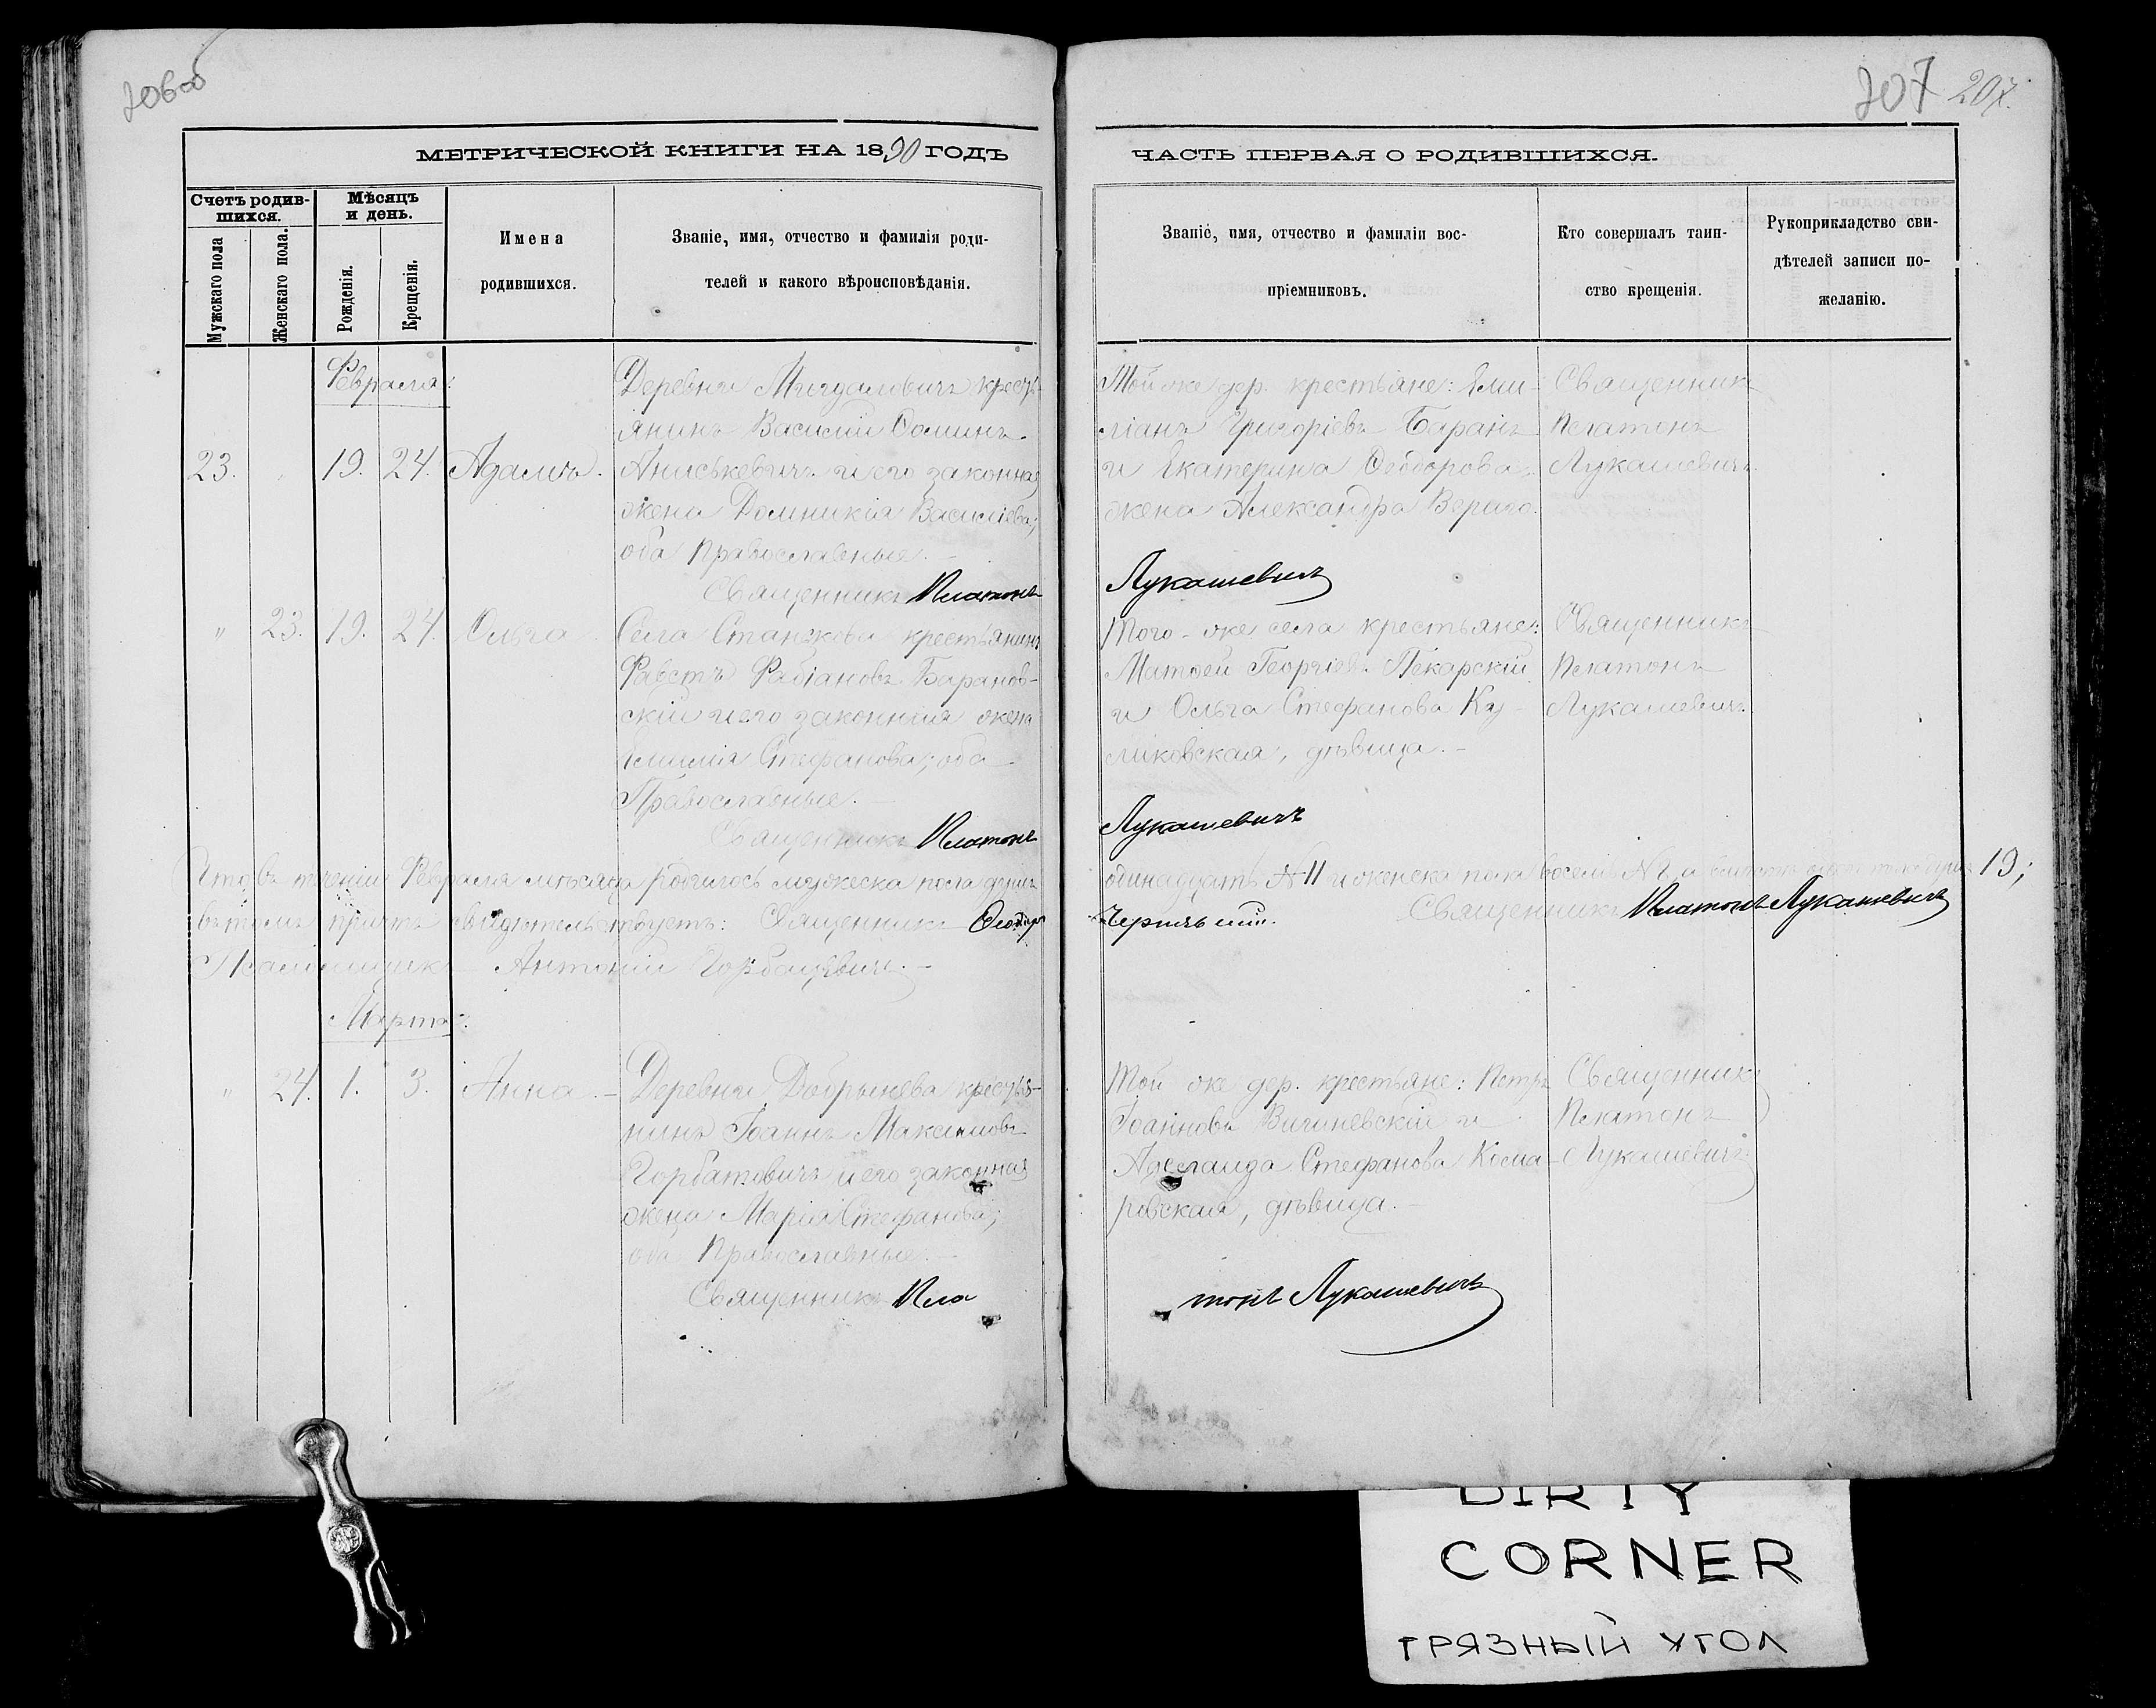 206об
207 207.
МЕТРИЧЕСКОЙ КНИГИ НА 1890 ГОДЪ
ЧАСТЬ ПЕРВАЯ О РОДИВШИХСЯ.
Счетъ родив-
шихся.
Мужскаго пола
Женскаго пола.
Мѣсяцъ
и день.
Рожденія.
Крещенія.
Имена
родившихся.
Званіе, имя, отчество и фамилія роди-
телей и какого вѣроисповѣданія.
Званіе, имя, отчество и фамиліи вос-
пріемниковъ.
Кто совершалъ таин-
ство крещенія.
Рукоприкладство сви-
дѣтелей записи по-
желанію.
Февраля:
23. 19. 24. Адамъ.
Деревни крестъ-
янинъ Василій Ѳоминъ
Аниськевичъ и его законная
жена Домникія Василіева;
оба Православные.
Священникъ Платонъ
Той же дер. крестьяне: Еми-
ліанъ Григоріевъ Баранъ
и Екатерина Ѳеодорова
жена Александра Вериго.
Лукашевичъ
Священникъ
Платонъ
Лукашевичъ.
" 23. 19. 24. Ольга.
Села Станькова крестьянинъ
Фавстъ Фабіановъ Баранов-
скій и его законная жена
Стефанова; оба
Православные.
Священникъ Платонъ
Того-же села крестьяне:
Матѳей Георгіевъ Пекарскій
и Ольга Стефанова Ку-
ликовская, дѣвица.
Лукашевичъ
Священникъ
Платонъ
Лукашевичъ.
Что въ теченіи Февраля мѣсяца родилось мужеска пола душъ
одинадцать № 11 и женска пола восемь № 19;
въ томъ причтъ свидѣтельствуетъ: Священникъ Ѳеодоръ
Священникъ Платонъ Лукашевичъ
Псаломщикъ Антоній Горбацевичъ.
Марта:
" 24. 1. 3. Анна.
Деревни Добрынева крестья-
нинъ Іоаннъ Максимовъ
Горбатовичъ и его законная
жена Марія Стефанова;
оба Православные.
Священникъ Пла
Той же дер. крестьяне: Петръ
Іоанновъ и
Аделаида Стефанова Кома-
ровская, дѣвица.
тонъ Лукашевичъ
Священникъ
Платонъ
Лукашевичъ.
DIRTY
CORNER
ГРЯЗНЫЙ УГОЛ